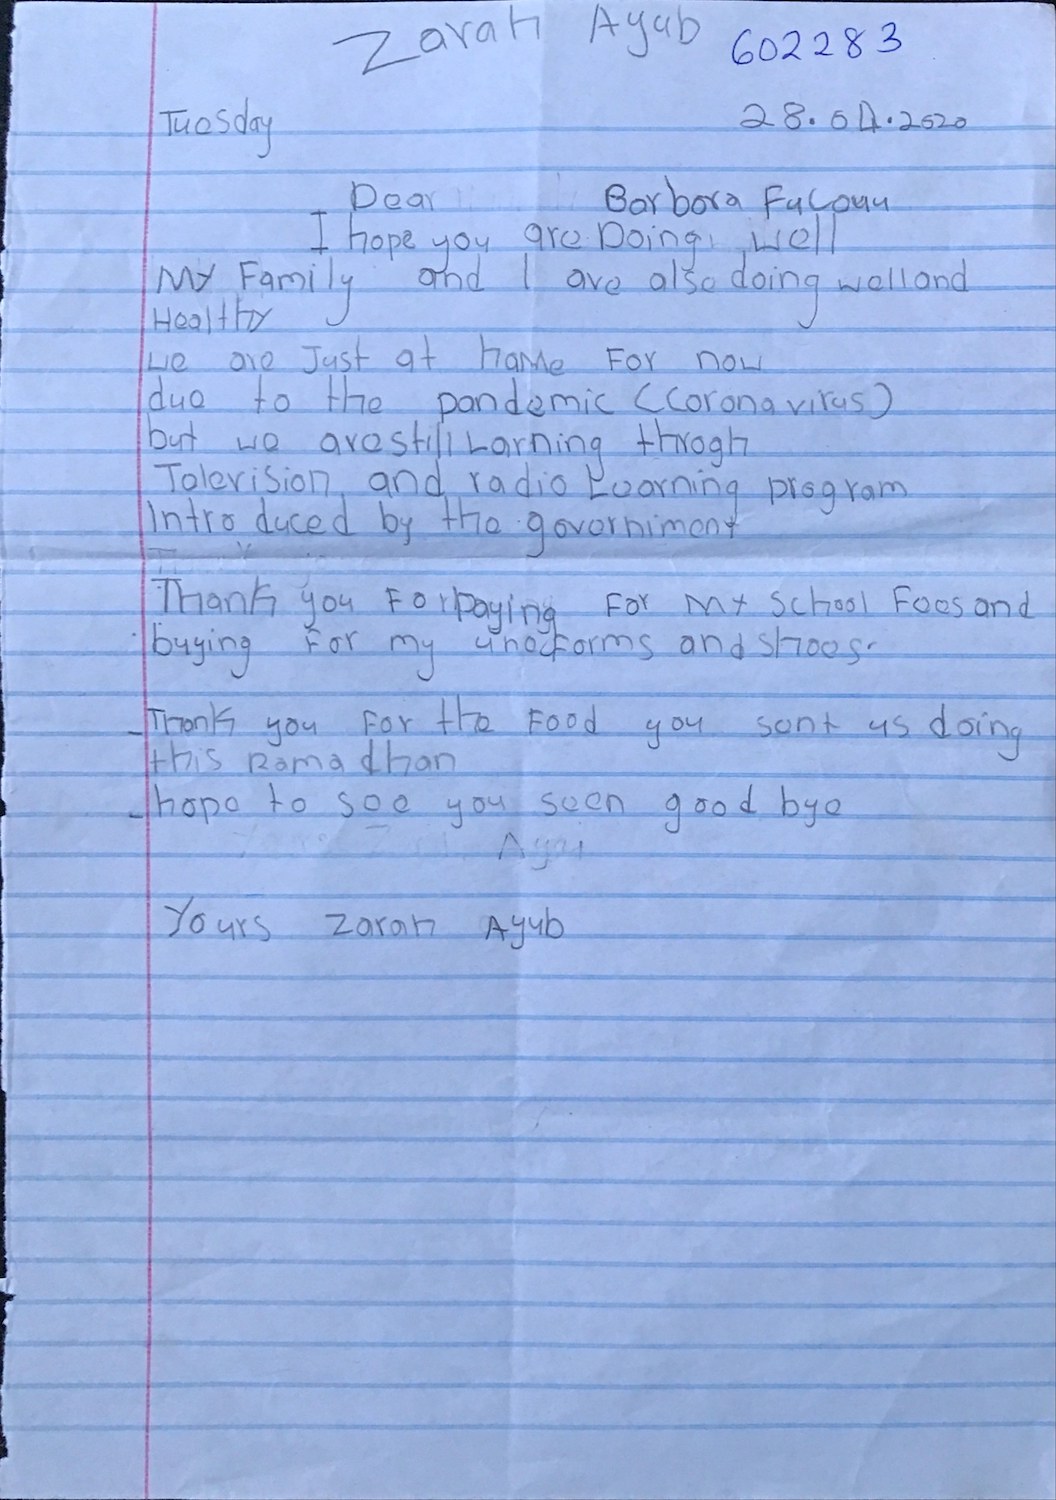 Zarah Ayub 602283
Tuesday 28.04.2020
Dear Barbora
I hope you are Doing well
My Family and I are also doing well and
Healthy
we are Just at home For now
due to the pandemic (Coronavirus)
but we are still Larning throgh
Television and radio Learning program
Introduced by the governiment
Thank you For paying For my School Fees and
buying For my uniforms and shoes.
- Thank you For the Food you sent us doing
this Ramadhan
- hope to see you seen good bye
Yours Zarah Ayub